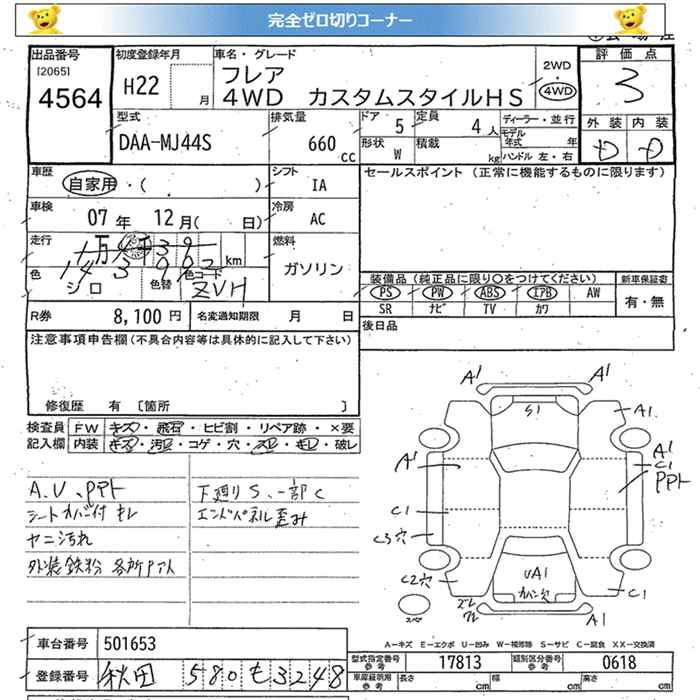 完全ゼロ切りコーナー
出品番号
[2065]
4564
初度登録年月
H22 月
車名・グレード
フレア
4WD カスタムスタイルHS
2WD
・
4WD
評価点
3
外装 内装
D D
型式
DAA-MJ44S
排気量
660 cc
ドア 5
定員 4 人
形状 W
積載 kg
ディーラー・並行
モデル年式 年
ハンドル 左・右
車歴
自家用・( )
シフト
IA
セールスポイント(正常に機能するものに限ります)
車検
07 年 12 月( 日)
冷房
AC
走行
万 千 km
143,962
燃料
ガソリン
色
シロ
色替
色コード
ZVH
装備品(純正品に限り○をつけてください)
新車保証書
PS PW ABS IAB AW
有・無
SR ナビ TV カワ
R券 8,100 円
名変通知期限 月 日
後日品
注意事項申告欄(不具合内容等は具体的に記入して下さい)
修復歴 有 〔箇所 〕
検査員記入欄
FW キズ・飛石・ヒビ割・リペア跡・×要
内装 キズ・汚レ・コゲ・穴・スレ・キレ・破レ
A.U、PPト
シートカバー付 キレ
ヤニ汚れ
外装鉄粉 各所PTト
下廻りS、一部C
エンドパネル歪み
A1 A1
S1
A1
A1
A1
C1
PPト
C1
C3穴
C2穴
UA1
カバー欠
C1
ズレ
ワレ
A1
スペア
A-キズ E-エクボ U-凹み W-補修跡 S-サビ C-腐食 XX-交換済
車台番号 501653
型式指定番号 参考 17813
類別区分番号 参考 0618
登録番号 秋田 580 も 3248
車庫証明用 参考
長さ cm
幅 cm
高さ cm